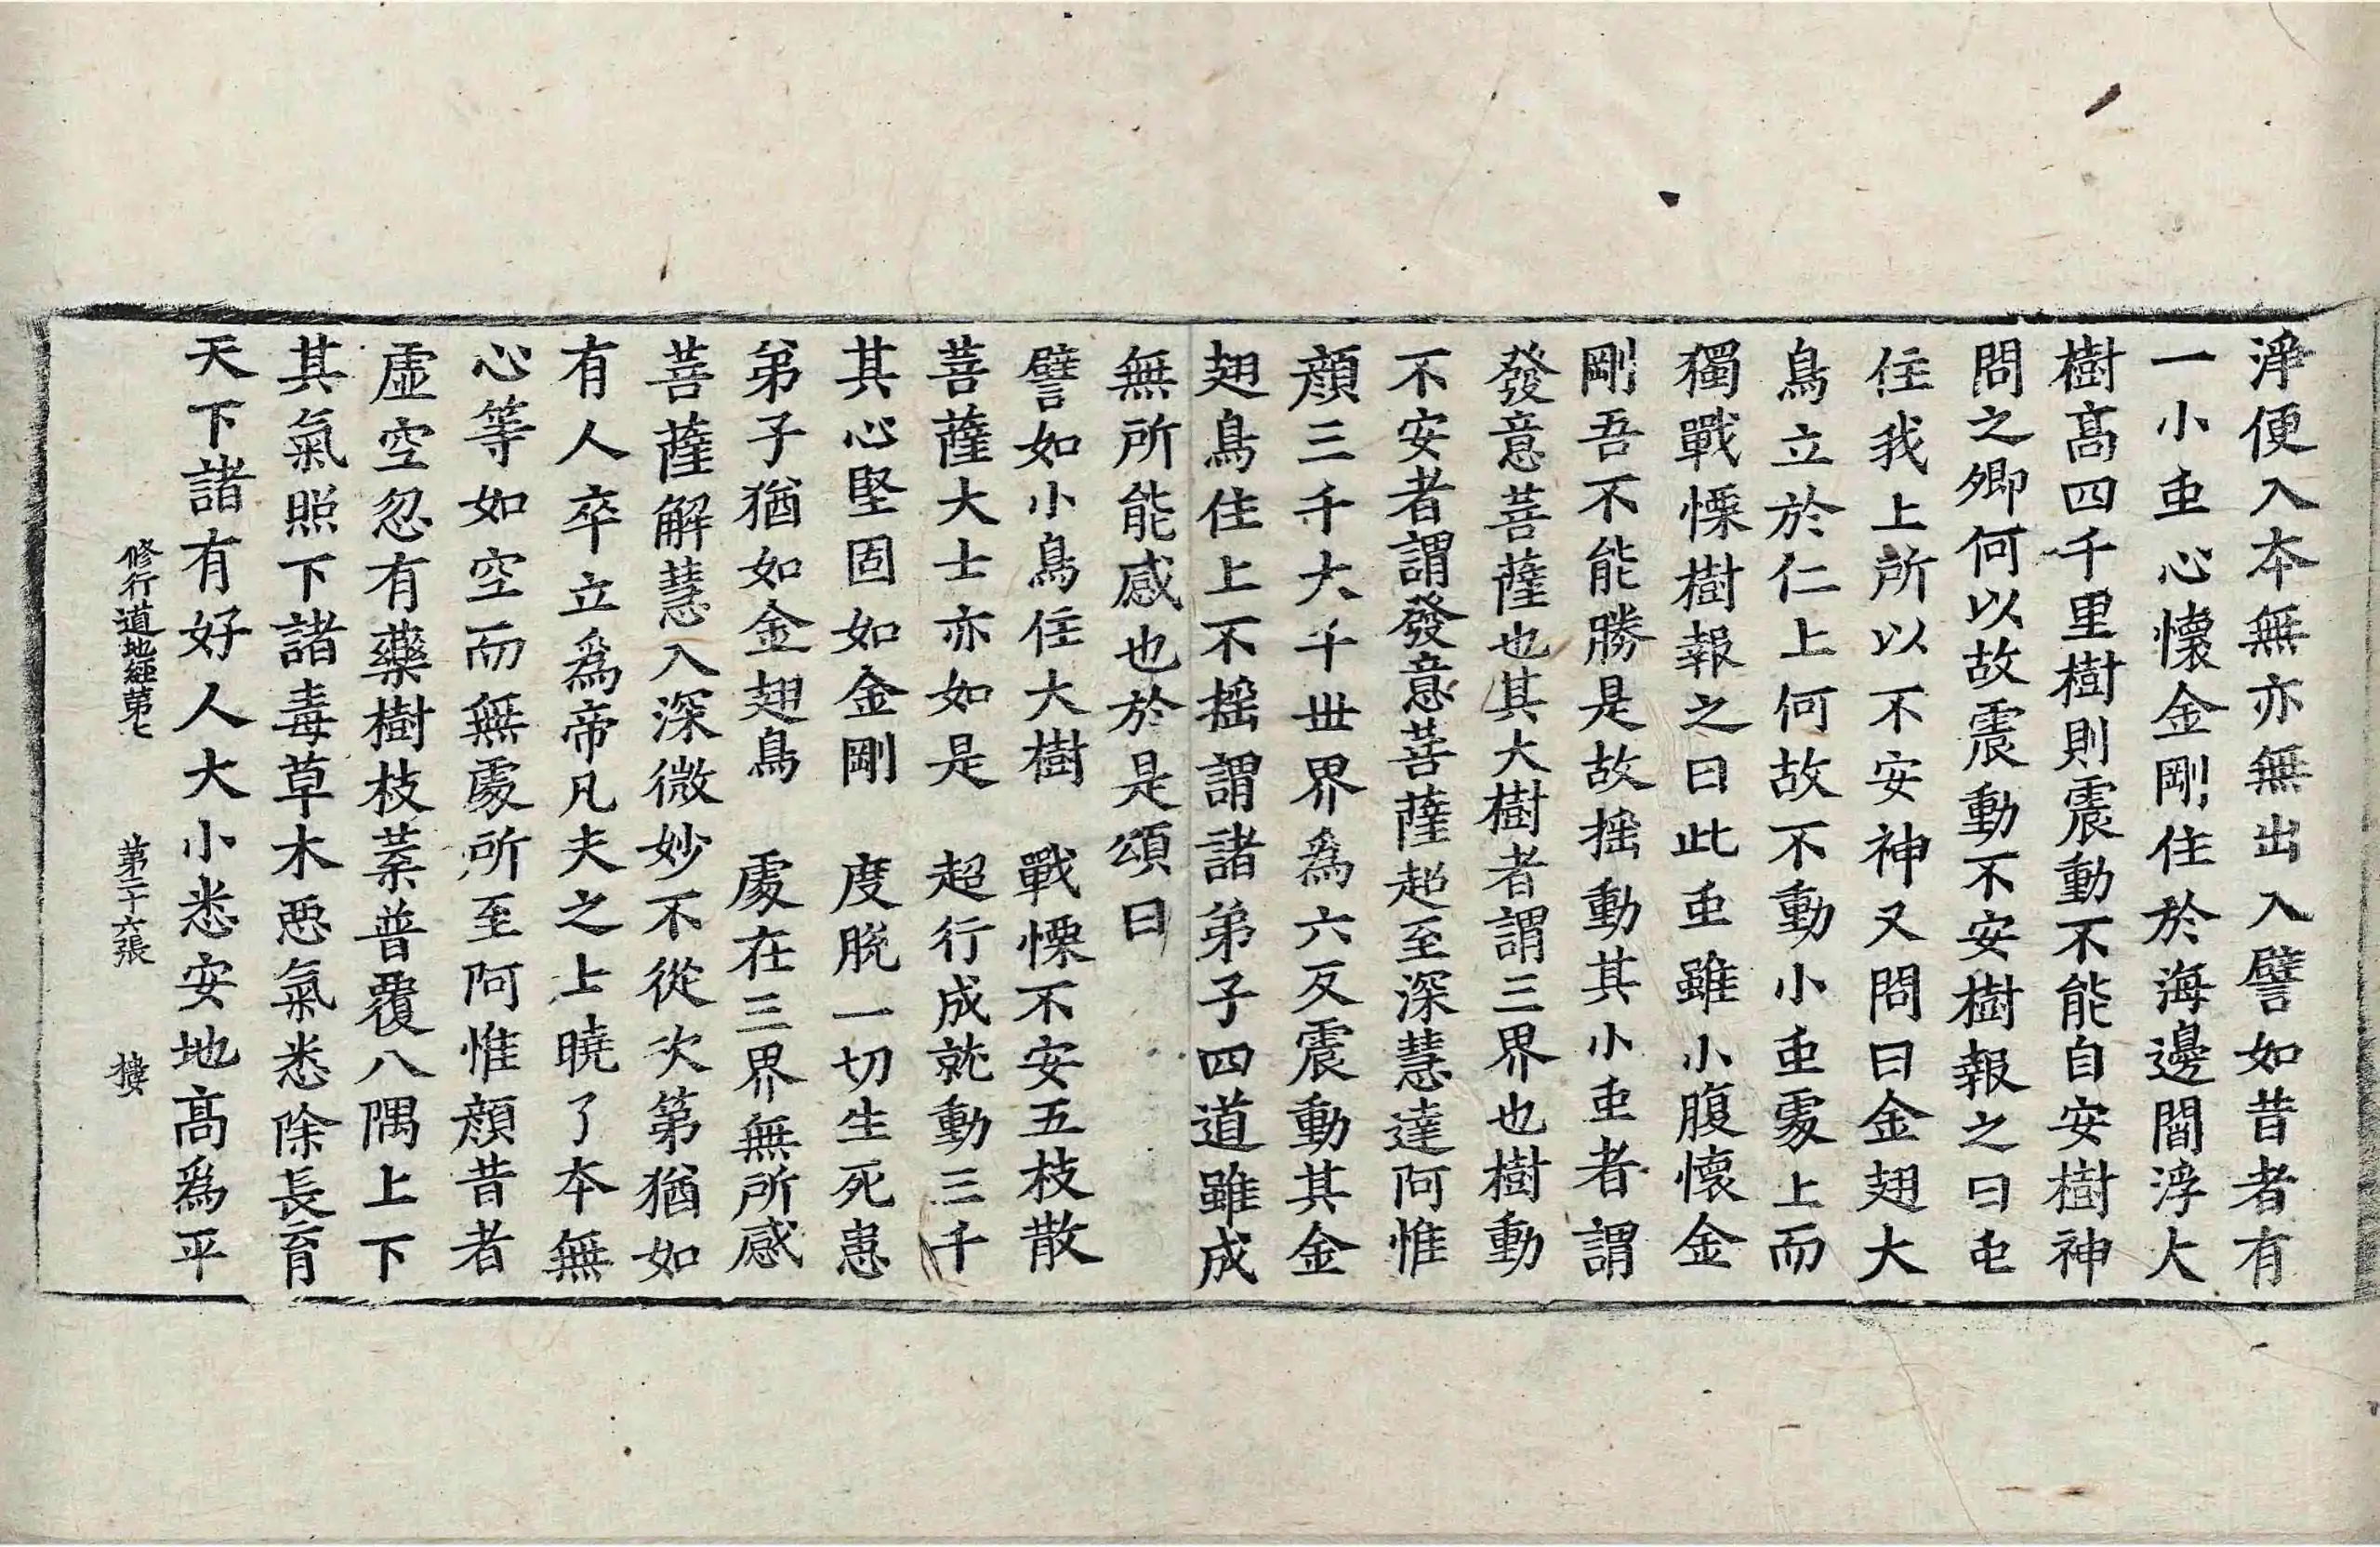 淨便入本無亦無出入譬如昔者有
一小䖝心懷金剛住於海邊閻浮大
樹髙四千里樹則震動不能自安樹神
問之卿何以故震動不安樹報之曰䖝
住我上所以不安神又問曰金翅大
鳥立於仁上何故不動小䖝䖏上而
獨戰慄樹報之曰此䖝雖小腹懷金
剛吾不能勝是故揺動其小䖝者謂
發意菩薩也其大樹者謂三界也樹動
不安者謂發意菩薩超至深慧達阿惟
顔三千大千世界為六反震動其金
翅鳥住上不揺謂諸弟子四道雖成
無所能感也於是頌曰
譬如小鳥住大樹　戰慄不安五枝散
菩薩大士亦如是　超行成就動三千
其心堅固如金剛　度脫一切生死患
弟子猶如金翅鳥　䖏在三界無所感
菩薩解慧入深微妙不從次第猶如
有人卒立爲帝凡夫之上曉了本無
心等如空而無䖏所至阿惟顔昔者
虛空忽有藥樹枝葉普覆八隅上下
其氣照下諸毒草木惡氣悉除長育
天下諸有好人大小悉安地髙爲平
修行道地經第七　第二十六張　樓